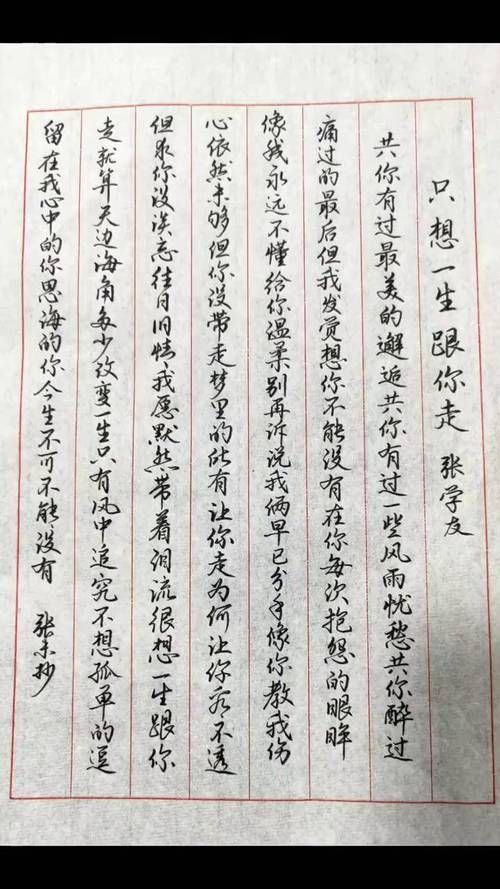 只想一生跟你走 张学友
共你有过最美的邂逅共你有过一些风雨忧愁共你醉过
痛过的最后但我发觉想你不能没有在你每次抱怨的眼眸
像我永远不懂给你温柔别再诉说我俩早已分手像你教我伤
心依然未够但你没带走梦里的所有让你走为何让你看不透
但求你没淡忘往日旧情我愿默然带着泪流很想一生跟你
走就算天边海角多少改变一生只有风中追究不想孤单的逗
留在我心中的你思海的你今生不可不能没有 张抄